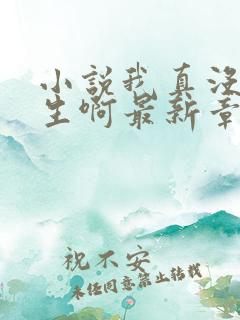 小說我真没
生啊最新章
祝不安
未经同意禁止转载